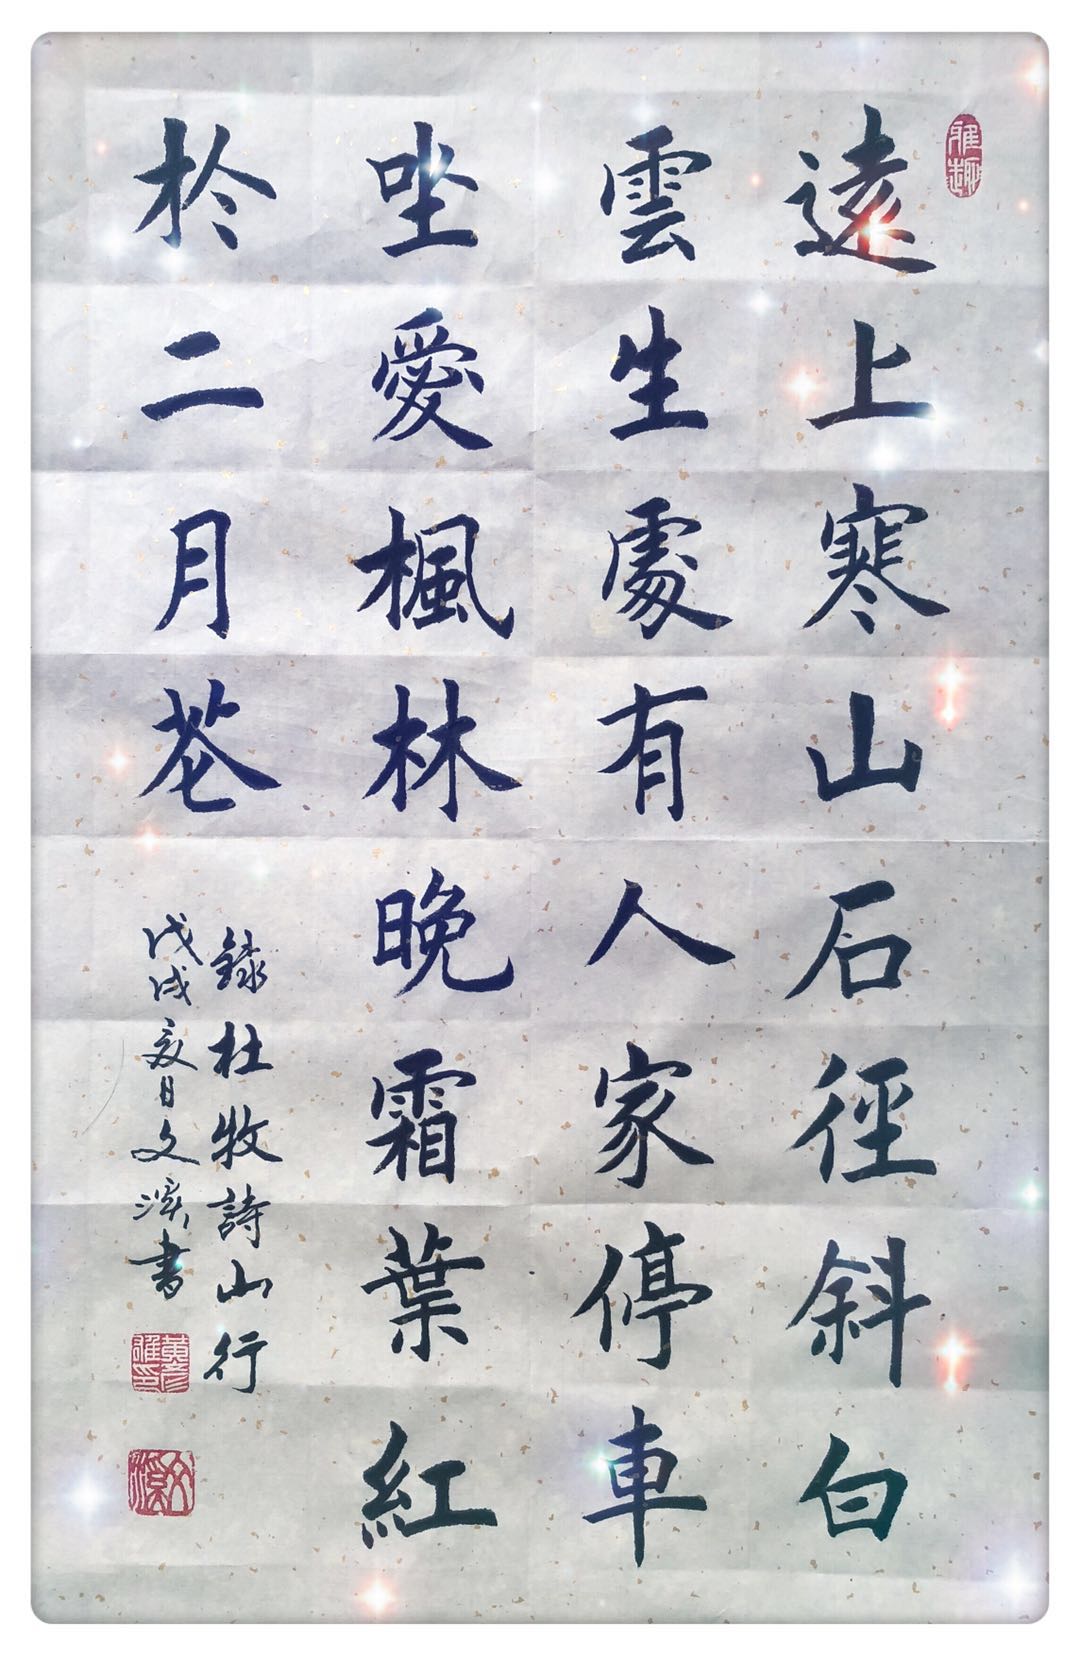 雅趣
遠上寒山石徑斜白
雲生處有人家停車
坐愛楓林晚霜葉紅
於二月花
錄杜牧詩山行
戊戌夏日文溪書
黄彦雅印
文溪